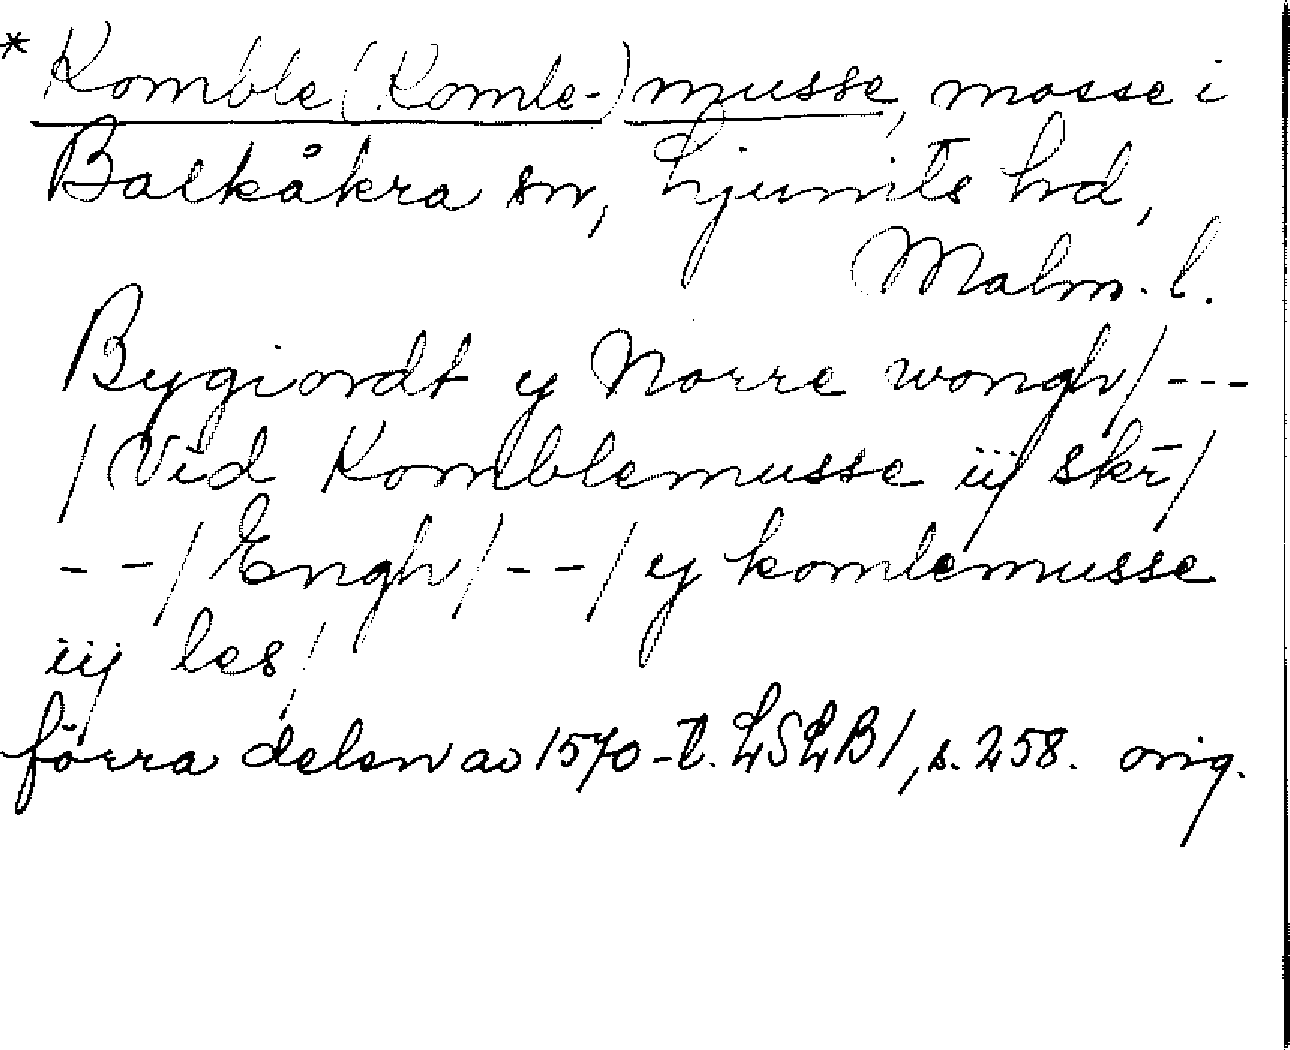 * Komble(Komle-)musse, mosse i
Balkåkra sn, Ljunits hd,
Malm. l.
Bygiordt y Norre wongh/---
/Vid Komblemusse iij skr/
--/Engh/--/y komlemusse
iij les/
förra delen av 1570-t. LSLB1, s. 258. orig.